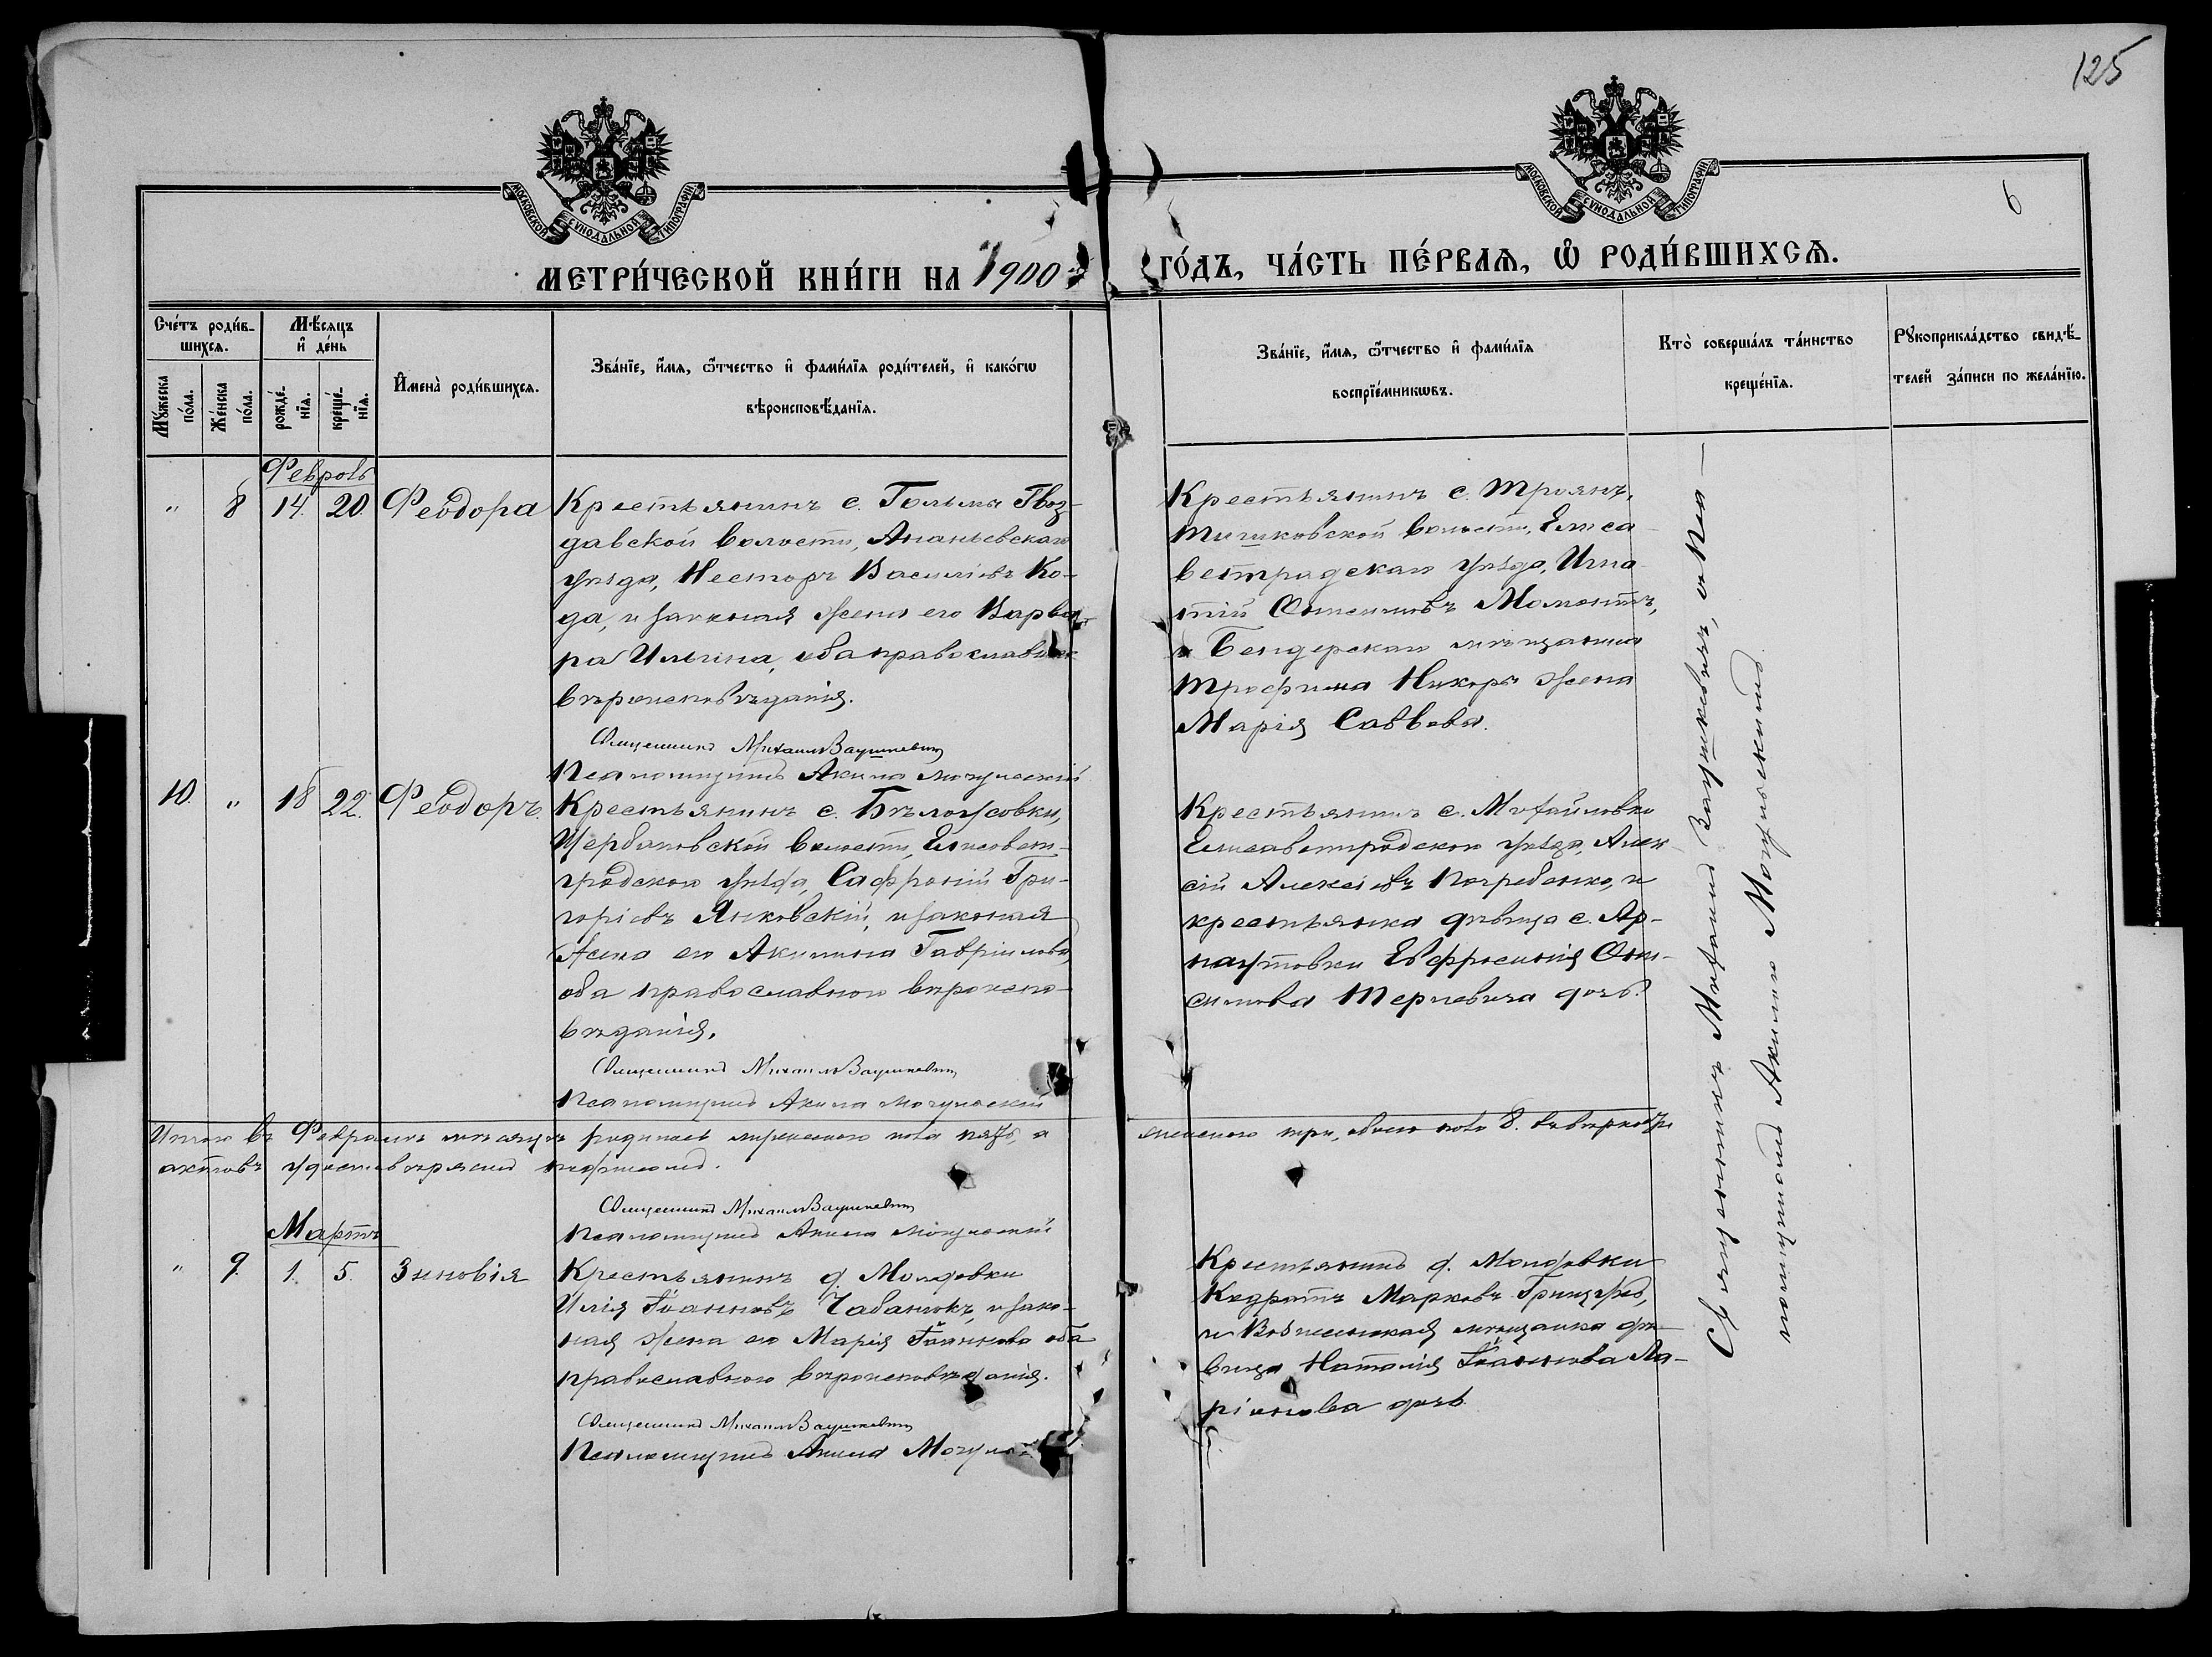 125
6
МОСКОВСКОЙ СѴНОДАЛЬНОЙ ТИПОГРАФІИ
МОСКОВСКОЙ СѴНОДАЛЬНОЙ ТИПОГРАФІИ
МЕТРИ́ЧЕСКОЙ КНИ́ГИ НА 1900 ГО́ДЪ, ЧА́СТЬ ПЕ́РВАѦ, Ѡ҆ РОДИ́ВШИХСѦ.
Сче́тъ роди́в-
шихсѧ.
Мѹ́жеска
по́ла.
Же́нска
по́ла.
Мѣ́сѧцъ
и҆ де́нь
рожде́-
нїѧ.
креще́-
нїѧ.
И҆мена̀ роди́вшихсѧ.
Зва́нїе, и҆́мѧ, ѻ҆́тчество и҆ фами́лїѧ роди́телей, и҆ како́гѡ
вѣроисповѣ́данїѧ.
Зва́нїе, и҆́мѧ, ѻ҆́тчество и҆ фами́лїѧ
воспрїе́мникѡвъ.
Кто̀ соверша́лъ та́инство
креще́нїѧ.
Рѹкоприкла́дство свидѣ́-
телей за́писи по жела́нїю.
Февраль
" 8 14. 20. Феодора
Крестьянинъ с. Гольмы Гвоз-
давской волости, Ананьевскаго
уѣзда, Несторъ Васильевъ Ко-
да, и законная жена его Варва-
ра Ильина, оба православнаго
вѣроисповѣданія.
Священникъ Михаилъ Ваушкевич
Псаломщикъ Акила Могульскій
Крестьянинъ с. Троянъ,
Тишковской волости, Елиса-
ветградскаго уѣзда, Игна-
тій Онисимовъ Момотъ,
и Бендерскаго мѣщанина
Трофима жена
Марія Саввова.
10. " 18 22. Феодоръ.
Крестьянинъ с. Бѣлоусовки,
Щербановской волости, Елисавет-
градскаго уѣзда, Сафроній Гри-
горіевъ Янковскій, и законная
жена его Акилина Гавріилова,
оба православнаго вѣроиспо-
вѣданія.
Священникъ Михаилъ Ваушкевич
Псаломщикъ Акила Могульскій
Крестьянинъ с. Михайловки
Елисаветградскаго уѣзда, Алек-
сій Алексіевъ Погребенко, и
крестьянка дѣвица с. Ар-
наутовки Евфросинія Они-
симова дочь.
Итого въ Февралѣ мѣсяцѣ родилось мужескаго пола пять, а женскаго три, обоего пола 8.
актовъ удостовѣряемъ подписомъ.
Священникъ Михаилъ Ваушкевич
Псаломщикъ Акила Могульскій
Мартъ
" 9. 1. 5. Зиновія
Крестьянинъ д. Молдовки
Илія Іоанновъ Чабанюкъ, и зако-
ная жена его Марія Іоаннова оба
православнаго вѣроисповѣданія.
Священникъ Михаилъ Ваушкевич
Псаломщикъ Акила Могульскій
Крестьянинъ д. Молдовки
Кодратъ Марковъ
и Вознесенская мѣщанка дѣ-
вица Наталія Іоаннова Ла-
ріонова дочь
Священникъ Михаилъ Ваушкевичъ, съ Пса-
ломщикомъ Акилою Могульскимъ